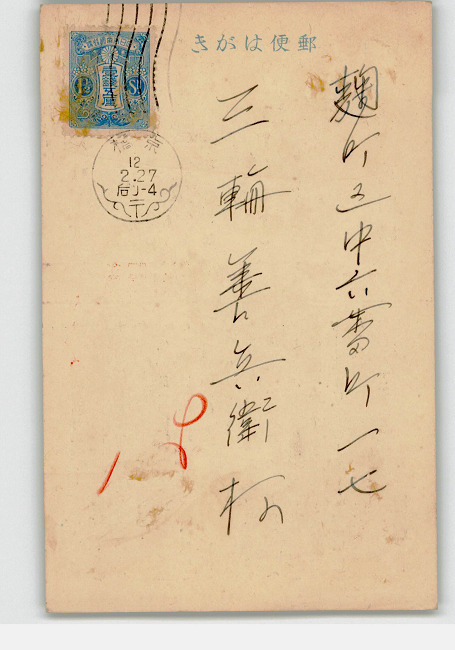 郵便はがき
麹町区中六番町一七
三輪善兵衛様
壹錢五厘
1½ Sn
京橋
12
2.27
后0-4